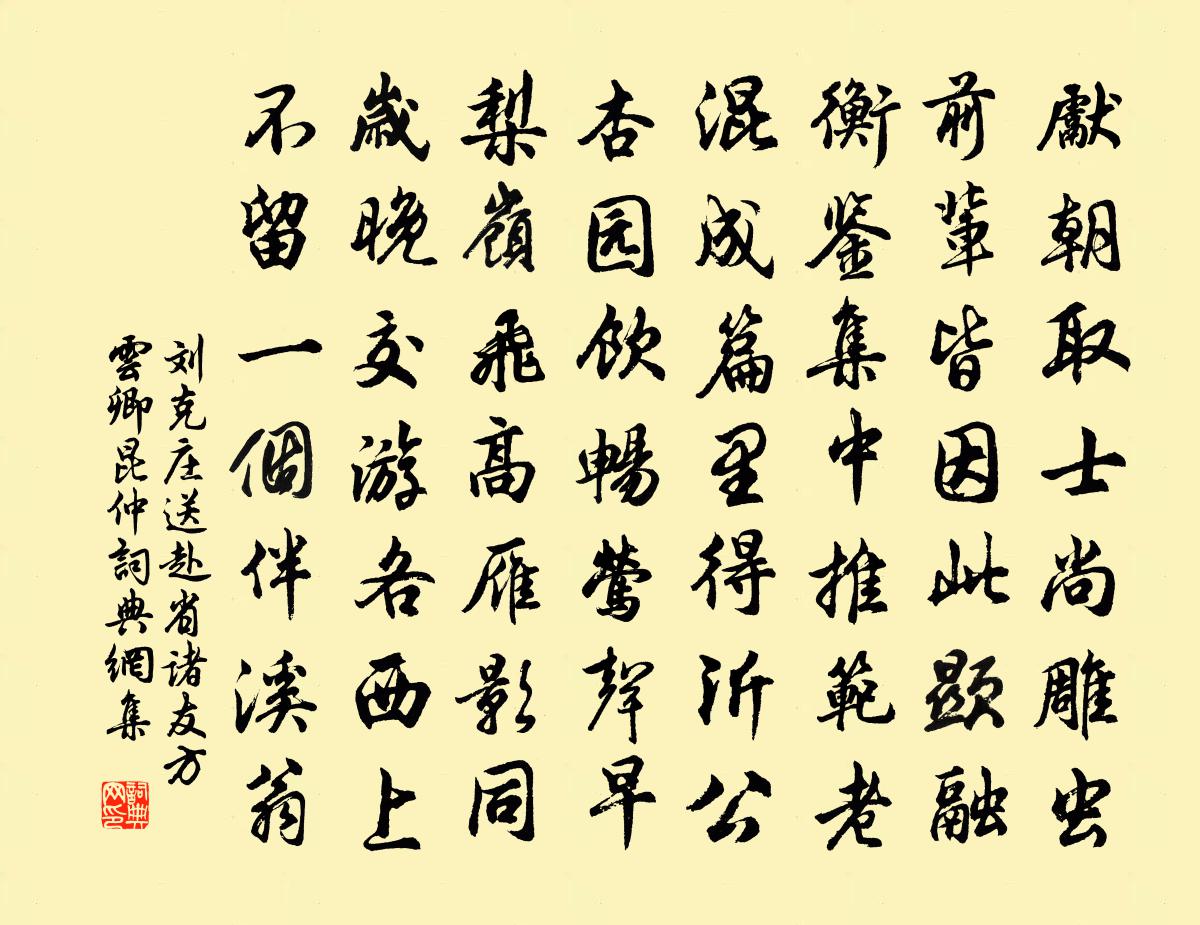 獻朝取士尚雕虫
前輩皆因此顯融
衡鉴集中推範老
混成篇里得沂公
杏园飲暢鶯聲早
梨嶺飛高雁影同
歲晚交游各西上
不留一個伴溪翁
刘克庄送赴省诸友方
雲卿昆仲詞典網集
詞典网印